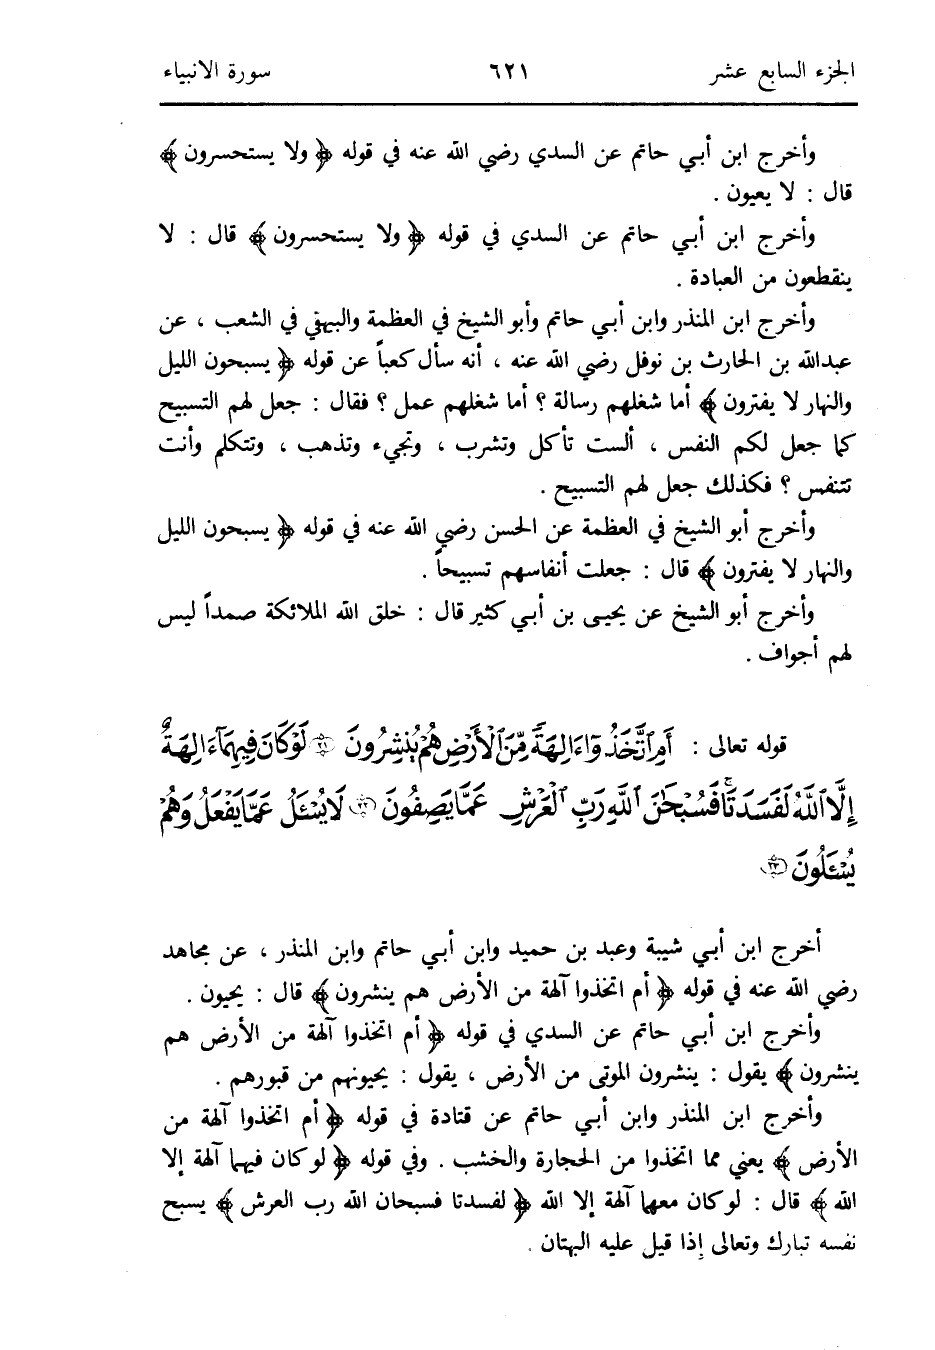 الجزء السابع عشر ٦٢١ سورة الانبياء
وأخرج ابن أبي حاتم عن السدي رضي الله عنه في قوله ﴿ ولا يستحسرون ﴾
قال : لا يعيون .
وأخرج ابن أبي حاتم عن السدي في قوله ﴿ ولا يستحسرون ﴾ قال : لا
ينقطعون من العبادة .
وأخرج ابن المنذر وابن أبي حاتم وأبو الشيخ في العظمة والبيهقي في الشعب ، عن
عبدالله بن الحارث بن نوفل رضي الله عنه ، أنه سأل كعباً عن قوله ﴿ يسبحون الليل
والنهار لا يفترون ﴾ أما شغلهم رسالة ؟ أما شغلهم عمل ؟ فقال : جعل لهم التسبيح
كما جعل لكم النفس ، ألست تأكل وتشرب ، وتجيء وتذهب ، وتتكلم وأنت
تتنفس ؟ فكذلك جعل لهم التسبيح .
وأخرج أبو الشيخ في العظمة عن الحسن رضي الله عنه في قوله ﴿ يسبحون الليل
والنهار لا يفترون ﴾ قال : جعلت أنفاسهم تسبيحاً .
وأخرج أبو الشيخ عن يحيى بن أبي كثير قال : خلق الله الملائكة صمداً ليس
لهم أجواف .
قوله تعالى : أَمِ ٱتَّخَذُوٓا۟ ءَالِهَةً مِّنَ ٱلْأَرْضِ هُمْ يُنشِرُونَ ۝٢١ لَوْ كَانَ فِيهِمَآ ءَالِهَةٌ
إِلَّا ٱللَّهُ لَفَسَدَتَا ۚ فَسُبْحَٰنَ ٱللَّهِ رَبِّ ٱلْعَرْشِ عَمَّا يَصِفُونَ ۝٢٢ لَا يُسْـَٔلُ عَمَّا يَفْعَلُ وَهُمْ
يُسْـَٔلُونَ ۝٢٣
أخرج ابن أبي شيبة وعبد بن حميد وابن أبي حاتم وابن المنذر ، عن مجاهد
رضي الله عنه في قوله ﴿ أم اتخذوا آلهة من الأرض هم ينشرون ﴾ قال : يحيون .
وأخرج ابن أبي حاتم عن السدي في قوله ﴿ أم اتخذوا آلهة من الأرض هم
ينشرون ﴾ يقول : ينشرون الموتى من الأرض ، يقول : يحيونهم من قبورهم .
وأخرج ابن المنذر وابن أبي حاتم عن قتادة في قوله ﴿ أم اتخذوا آلهة من
الأرض ﴾ يعني مما اتخذوا من الحجارة والخشب . وفي قوله ﴿ لو كان فيهما آلهة إلا
الله ﴾ قال : لو كان معهما آلهة إلا الله ﴿ لفسدتا فسبحان الله رب العرش ﴾ يسبح
نفسه تبارك وتعالى إذا قيل عليه البهتان .